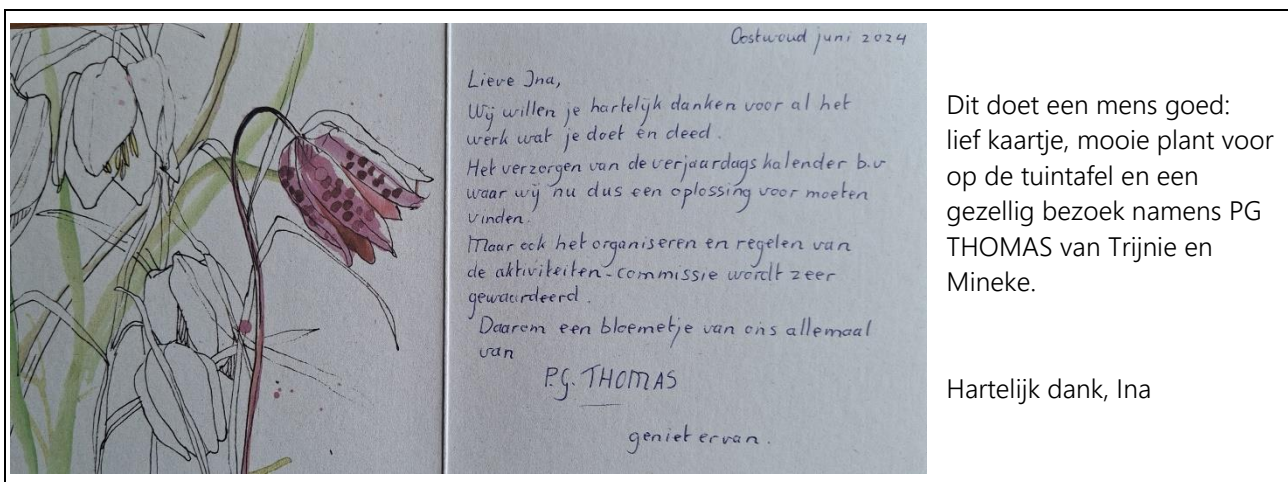 Oostwoud juni 2024
Lieve Ina,
Wij willen je hartelijk danken voor al het
werk wat je doet en deed.
Het verzorgen van de verjaardags kalender b.v
waar wij nu dus een oplossing voor moeten
vinden.
Maar ook het organiseren en regelen van
de aktiviteiten-commissie wordt zeer
gewaardeerd.
Daarom een bloemetje van ons allemaal
van
P.G. THOMAS
geniet ervan.
Dit doet een mens goed:
lief kaartje, mooie plant voor
op de tuintafel en een
gezellig bezoek namens PG
THOMAS van Trijnie en
Mineke.
Hartelijk dank, Ina